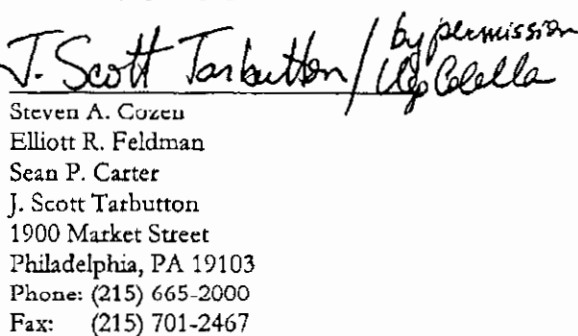 J. Scott Tarbutton / by permission
Ugo Colella
Steven A. Cozen
Elliott R. Feldman
Sean P. Carter
J. Scott Tarbutton
1900 Market Street
Philadelphia, PA 19103
Phone: (215) 665-2000
Fax: (215) 701-2467